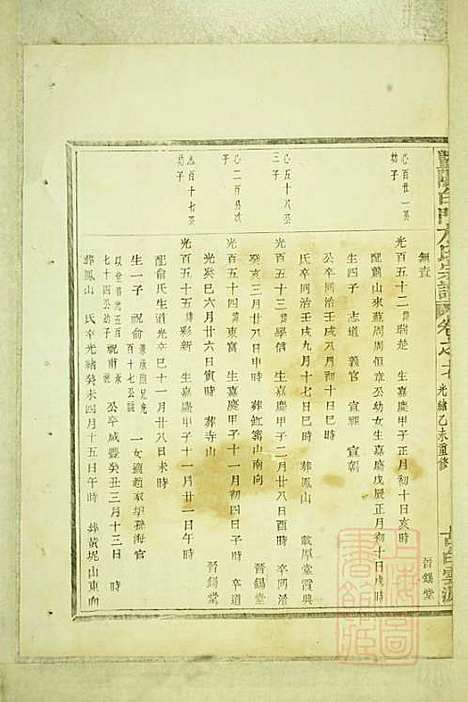 暨陽白門方氏宗譜 卷之七 光緒乙未重修 古白雲源
晉錫堂
無查
心百廿一 幼子
光百五十二 諱瑞楚 生嘉慶甲子正月初十日亥時
配前山來蘇周周恒章公幼女生嘉慶戊辰正月初十日戌時
公卒同治壬戌八月初十日巳時
氏卒同治壬戌九月十七日巳時 葬鳳山 敦厚堂霞與
生四子 志道 義官 宣 宣朝
心五十八公 三子
光百五十三 諱學信 生嘉慶甲子二月廿八日酉時 卒同治
癸亥三月廿八日申時 葬 山南向 晉錫堂
心二百 公
光百五十四 諱東富 生嘉慶甲子十一月初四日子時 卒道
光癸巳六月廿六日寅時 葬寺山 晉錫堂
心百十七公 幼子
光百五十五 諱彩新 生嘉慶甲子十一月廿一日午時
配俞氏生道光辛巳十一月廿八日未時
生一子 祝俞 百十七公 一女適趙家 孫海官
七十四公幼子 祝甫 公卒咸豐癸丑三月十三日 時
葬鳳山 氏卒光緒癸未四月十五日午時 葬黃坭山東向
上海圖書館藏